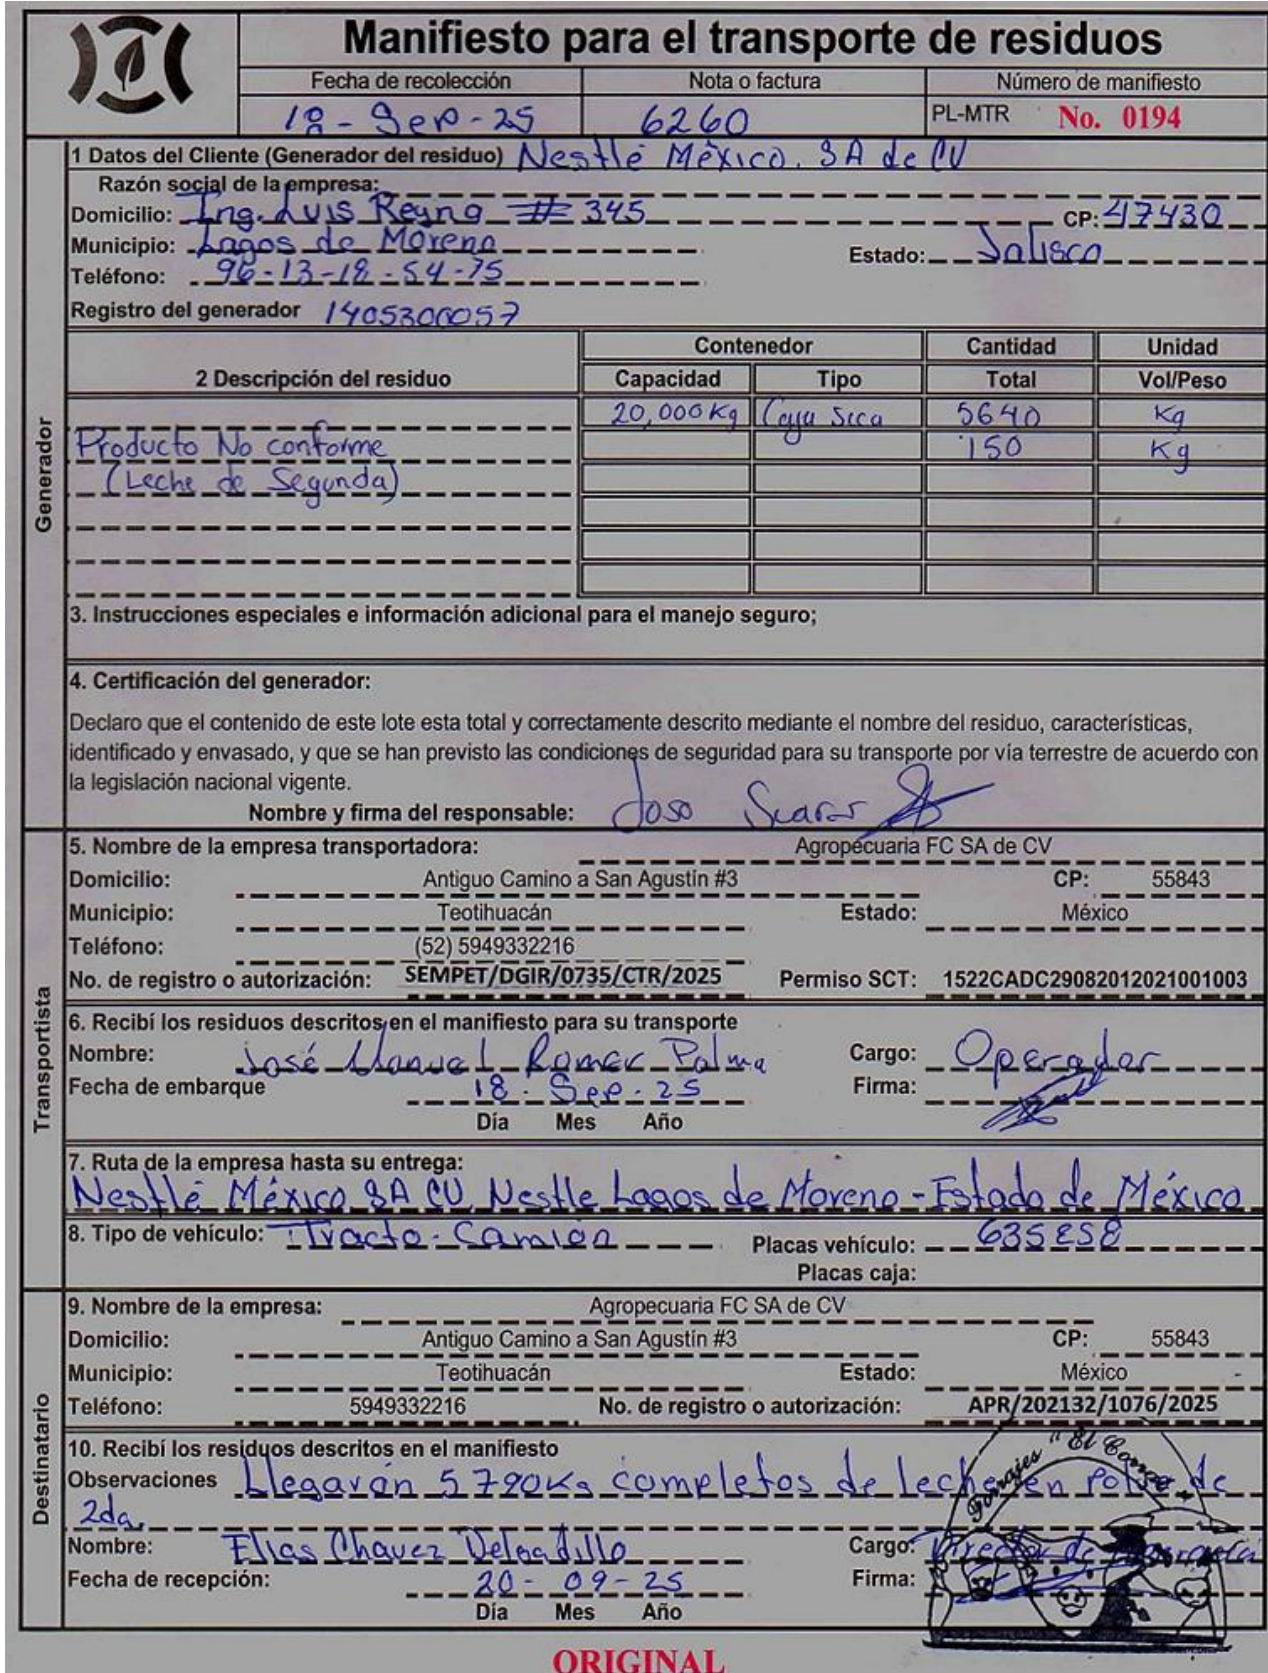 Manifiesto para el transporte de residuos
Fecha de recolección Nota o factura Número de manifiesto
18-Sep-25 6260 PL-MTR No. 0194
1 Datos del Cliente (Generador del residuo) Nestlé México. SA de CV
Razón social de la empresa:
Domicilio: Ing. Luis Reyna # 345 CP: 47430
Municipio: Lagos de Moreno Estado: Jalisco
Teléfono: 96-13-18-54-75
Registro del generador 1405300057
Contenedor Cantidad Unidad
2 Descripción del residuo Capacidad Tipo Total Vol/Peso
20,000 Kg Caja Seca 5640 Kg
Producto No conforme 150 Kg
(Leche de Segunda)
Generador
3. Instrucciones especiales e información adicional para el manejo seguro;
4. Certificación del generador:
Declaro que el contenido de este lote esta total y correctamente descrito mediante el nombre del residuo, características,
identificado y envasado, y que se han previsto las condiciones de seguridad para su transporte por vía terrestre de acuerdo con
la legislación nacional vigente.
Nombre y firma del responsable:
5. Nombre de la empresa transportadora: Agropecuaria FC SA de CV
Domicilio: Antiguo Camino a San Agustín #3 CP: 55843
Municipio: Teotihuacán Estado: México
Teléfono: (52) 5949332216
No. de registro o autorización: SEMPET/DGIR/0735/CTR/2025 Permiso SCT: 1522CADC29082012021001003
Transportista
6. Recibí los residuos descritos en el manifiesto para su transporte
Nombre: José Manuel Palma Cargo: Operador
Fecha de embarque 18-Sep-25 Firma:
Día Mes Año
7. Ruta de la empresa hasta su entrega:
Nestlé México SA CV, Nestle Lagos de Moreno - Estado de México
8. Tipo de vehículo: Tracto-Camión Placas vehículo: 635ES8
Placas caja:
9. Nombre de la empresa: Agropecuaria FC SA de CV
Domicilio: Antiguo Camino a San Agustín #3 CP: 55843
Municipio: Teotihuacán Estado: México
Teléfono: 5949332216 No. de registro o autorización: APR/202132/1076/2025
Destinatario
10. Recibí los residuos descritos en el manifiesto
Forrajes "El
Observaciones Llegarón 5790Kg completos de leche en Polvo de
2da.
Nombre: Elias Chavez Delgadillo Cargo: Director de
Fecha de recepción: 20-09-25 Firma:
Día Mes Año
ORIGINAL